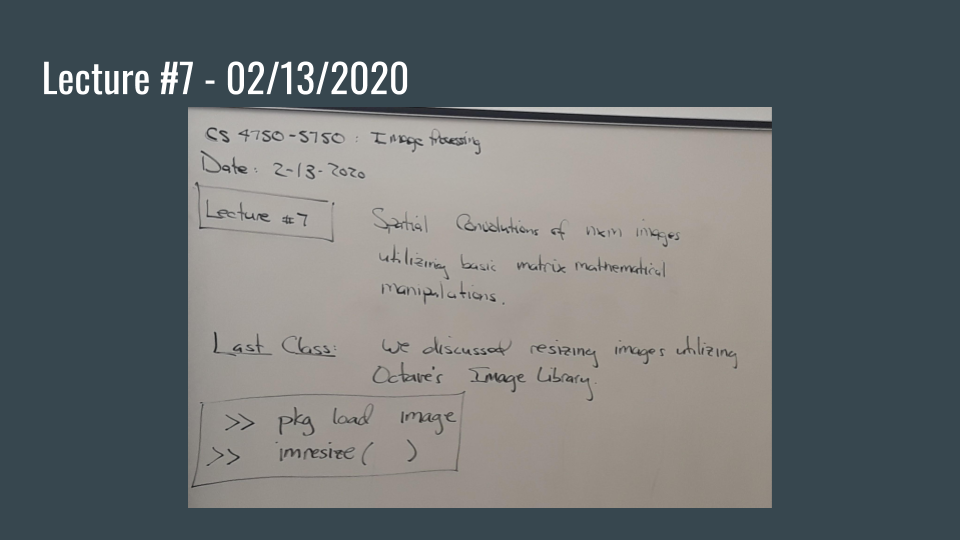 Lecture #7 - 02/13/2020
CS 4750-5750 : Image Processing
Date: 2-13-2020
Lecture #7
Spatial Convolutions of nxm images
utilizing basic matrix mathematical
manipulations.
Last Class: We discussed resizing images utilizing
Octave's Image Library.
>> pkg load image
>> imresize( )